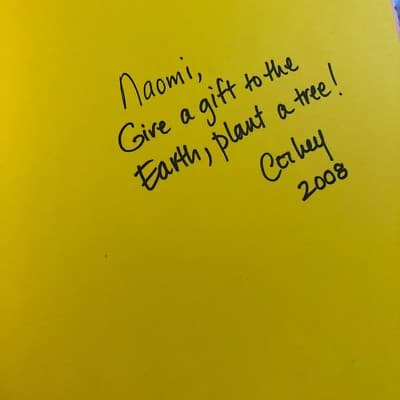 Naomi,
Give a gift to the
Earth, plant a tree!
2008